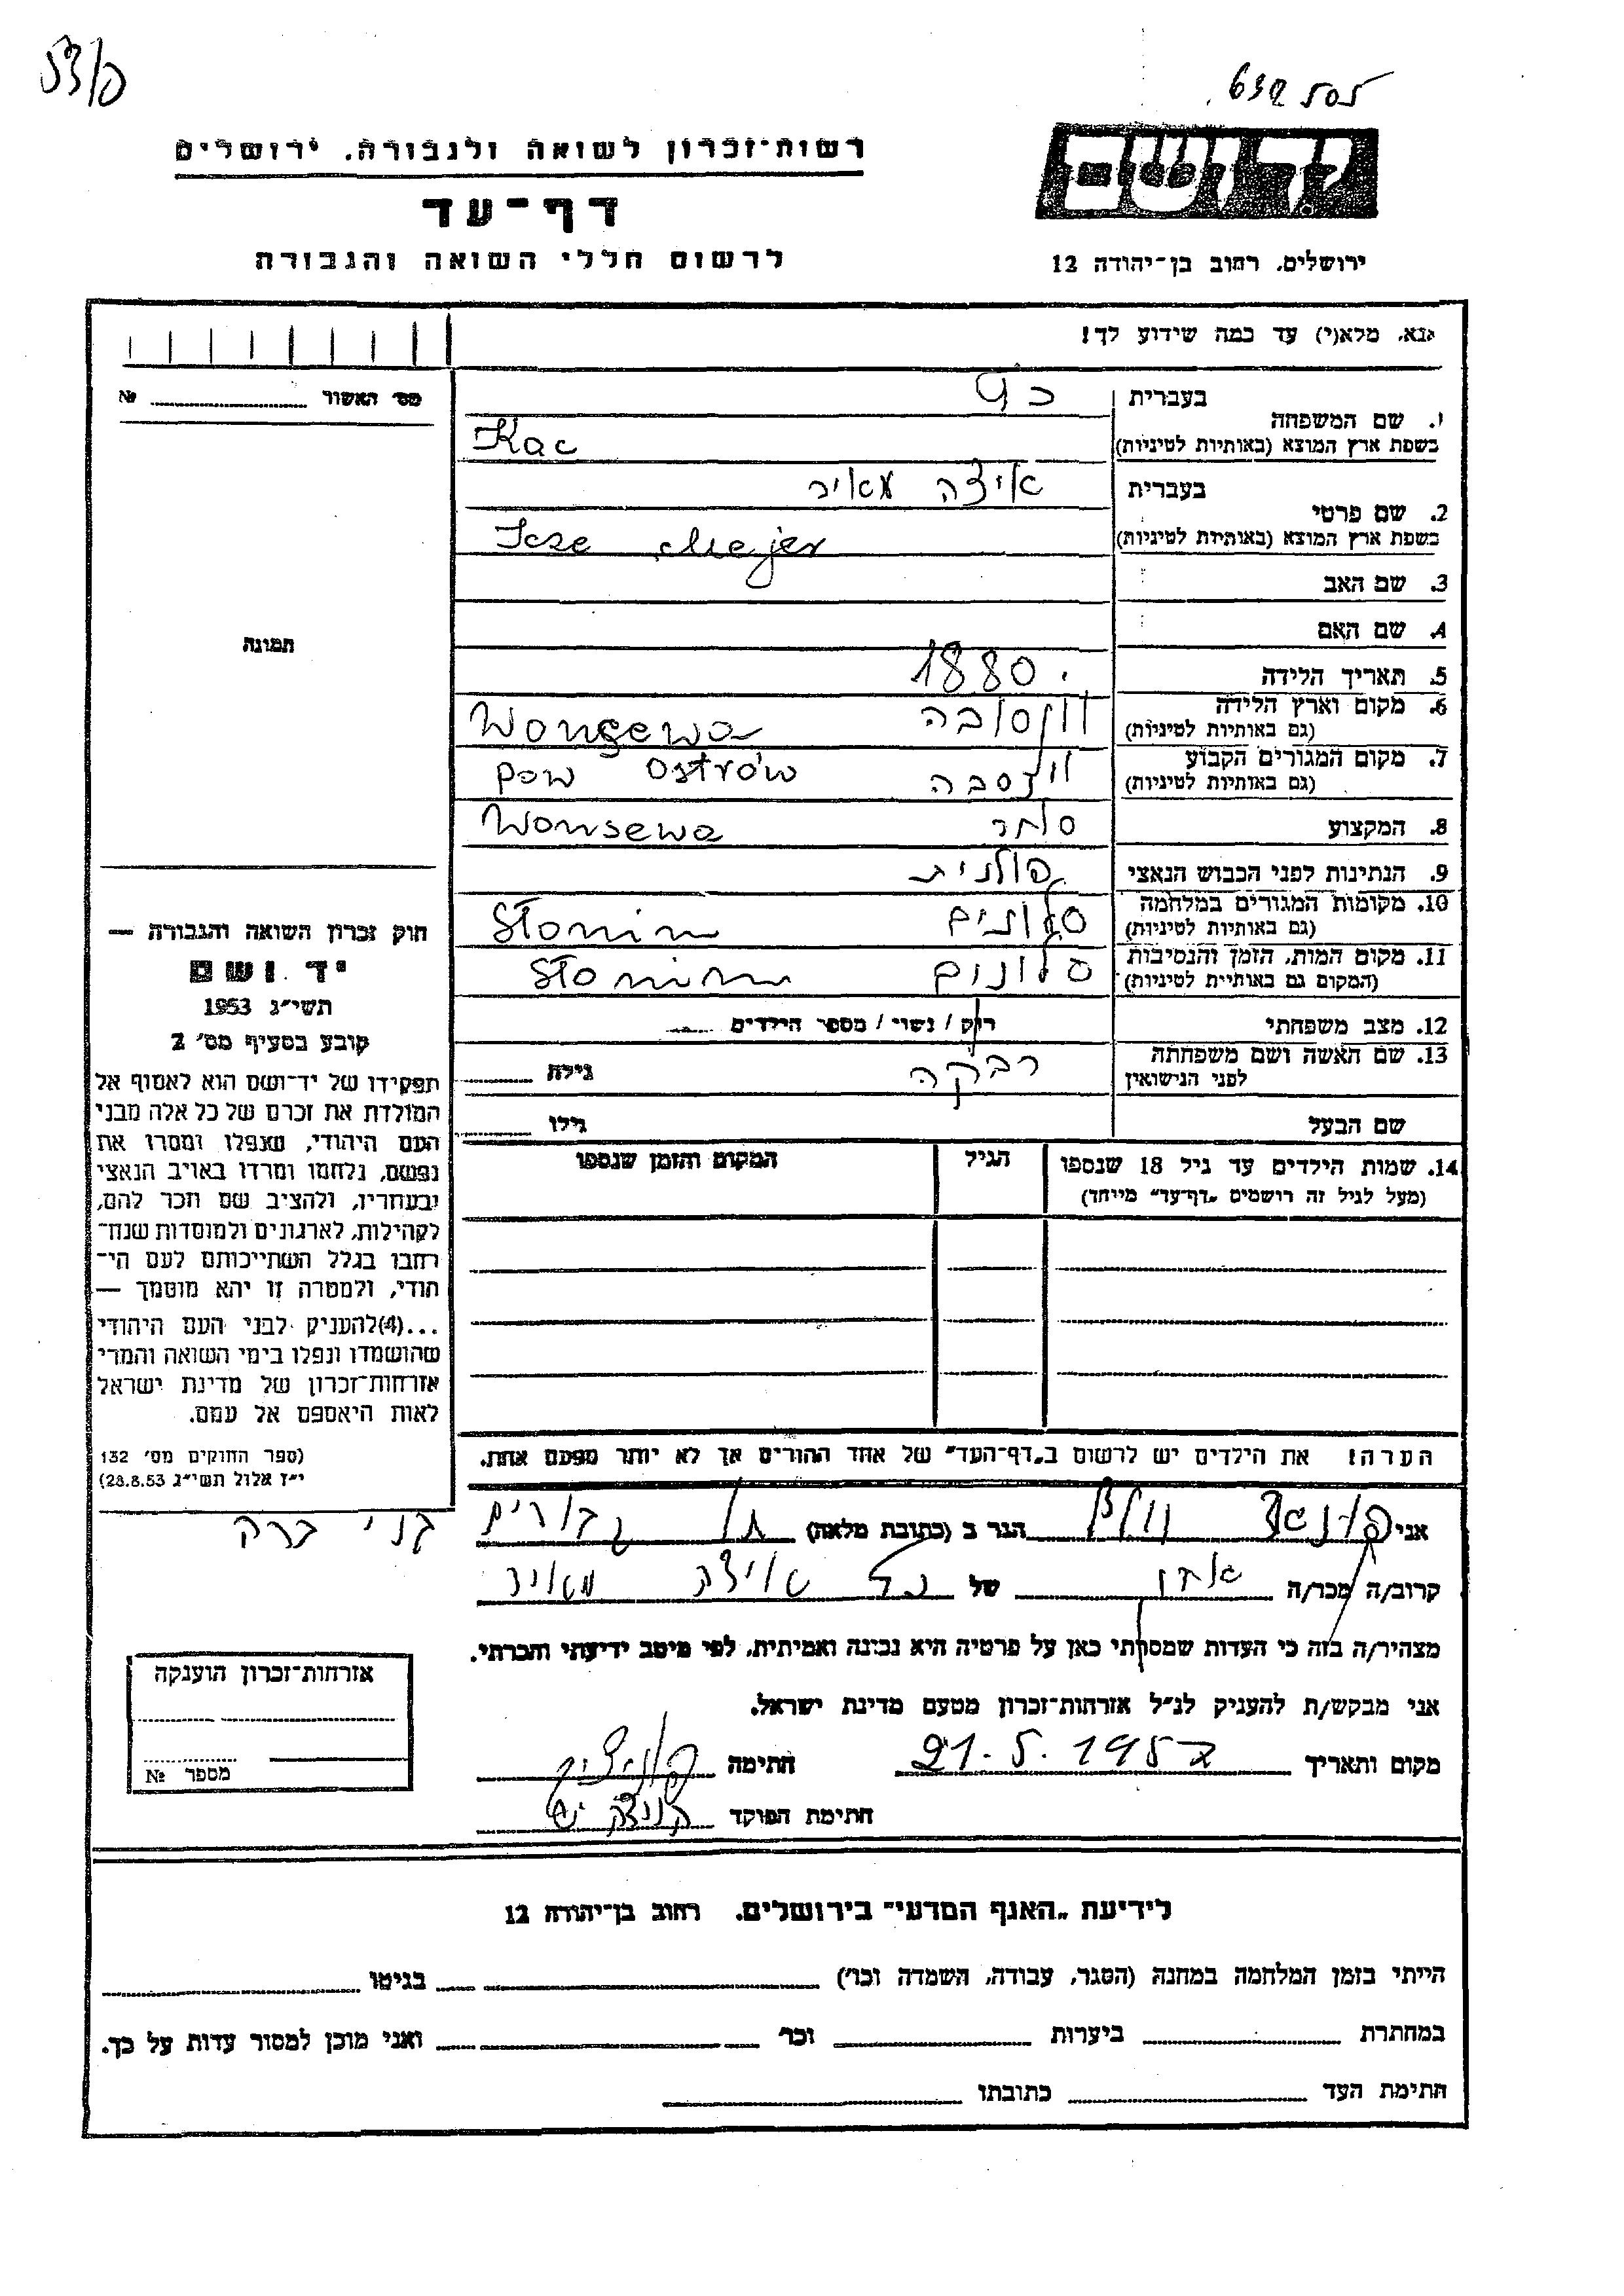 רשות־זכרון לשואה ולגבורה. ירושלים
דף־עד
לרשום חללי השואה והגבורה
יד ושם
ירושלים, רחוב בן־יהודה 12
אנא, מלא(י) עד כמה שידוע לך!
מס׳ האשור №
1. שם המשפחה בעברית כץ
בשפת ארץ המוצא (באותיות לטיניות) Kac
2. שם פרטי בעברית איצה מאיר
בשפת ארץ המוצא (באותיות לטיניות) Icze Mejer
3. שם האב
4. שם האם
תמונה
5. תאריך הלידה 1880
6. מקום וארץ הלידה
(גם באותיות לטיניות) Wonsewa
7. מקום המגורים הקבוע
(גם באותיות לטיניות) pow Ostrów
8. המקצוע סוחר Wonsewa
9. הנתינות לפני הכבוש הנאצי פולנית
10. מקומות המגורים במלחמה
(גם באותיות לטיניות) סלונים Słonim
11. מקום המות, הזמן והנסיבות
(המקום גם באותיית לטיניות) סלונים Słonim
12. מצב משפחתי רוק / נשוי / מספר הילדים
13. שם האשה ושם משפחתה
לפני הנישואין רבקה גילה
שם הבעל גילו
14. שמות הילדים עד גיל 18 שנספו הגיל המקום והזמן שנספו
(מעל לגיל זה רושמים „דף־עד״ מייחד)
חוק זכרון השואה והגבורה —
יד ושם
תשי״ג 1953
קובע בסעיף מס׳ 2
תפקידו של יד־ושם הוא לאסוף אל
המולדת את זכרם של כל אלה מבני
העם היהודי, שנפלו ומסרו את
נפשם, נלחמו ומרדו באויב הנאצי
ובעוזריו, ולהציב שם וזכר להם,
לקהילות, לארגונים ולמוסדות שנח־
רבו בגלל השתייכותם לעם הי־
הודי, ולמטרה זו יהא מוסמך —
...(4)להעניק לבני העם היהודי
שהושמדו ונפלו בימי השואה והמרי
אזרחות־זכרון של מדינת ישראל
לאות היאספם אל עמם.
(ספר החוקים מס׳ 132
י״ז אלול תשי״ג 28.8.53)
הערה! את הילדים יש לרשום ב„דף־העד״ של אחד ההורים אך לא יותר מפעם אחת.
אני הגר ב (כתובת מלאה) בני ברק
קרוב/ה מכר/ה של כץ איצה מאיר
מצהיר/ה בזה כי העדות שמסרתי כאן על פרטיה היא נכונה ואמיתית, לפי מיטב ידיעתי והכרתי.
אני מבקש/ת להעניק לנ״ל אזרחות־זכרון מטעם מדינת ישראל.
מקום ותאריך 21.5.1957 חתימה
חתימת הפוקד
אזרחות־זכרון הוענקה
מספר №
לידיעת „האגף המדעי״ בירושלים. רחוב בן־יהודה 12
הייתי בזמן המלחמה במחנה (הסגר, עבודה, השמדה וכו׳) בגיטו
במחתרת ביערות וכו׳ ואני מוכן למסור עדות על כך.
חתימת העד כתובתו